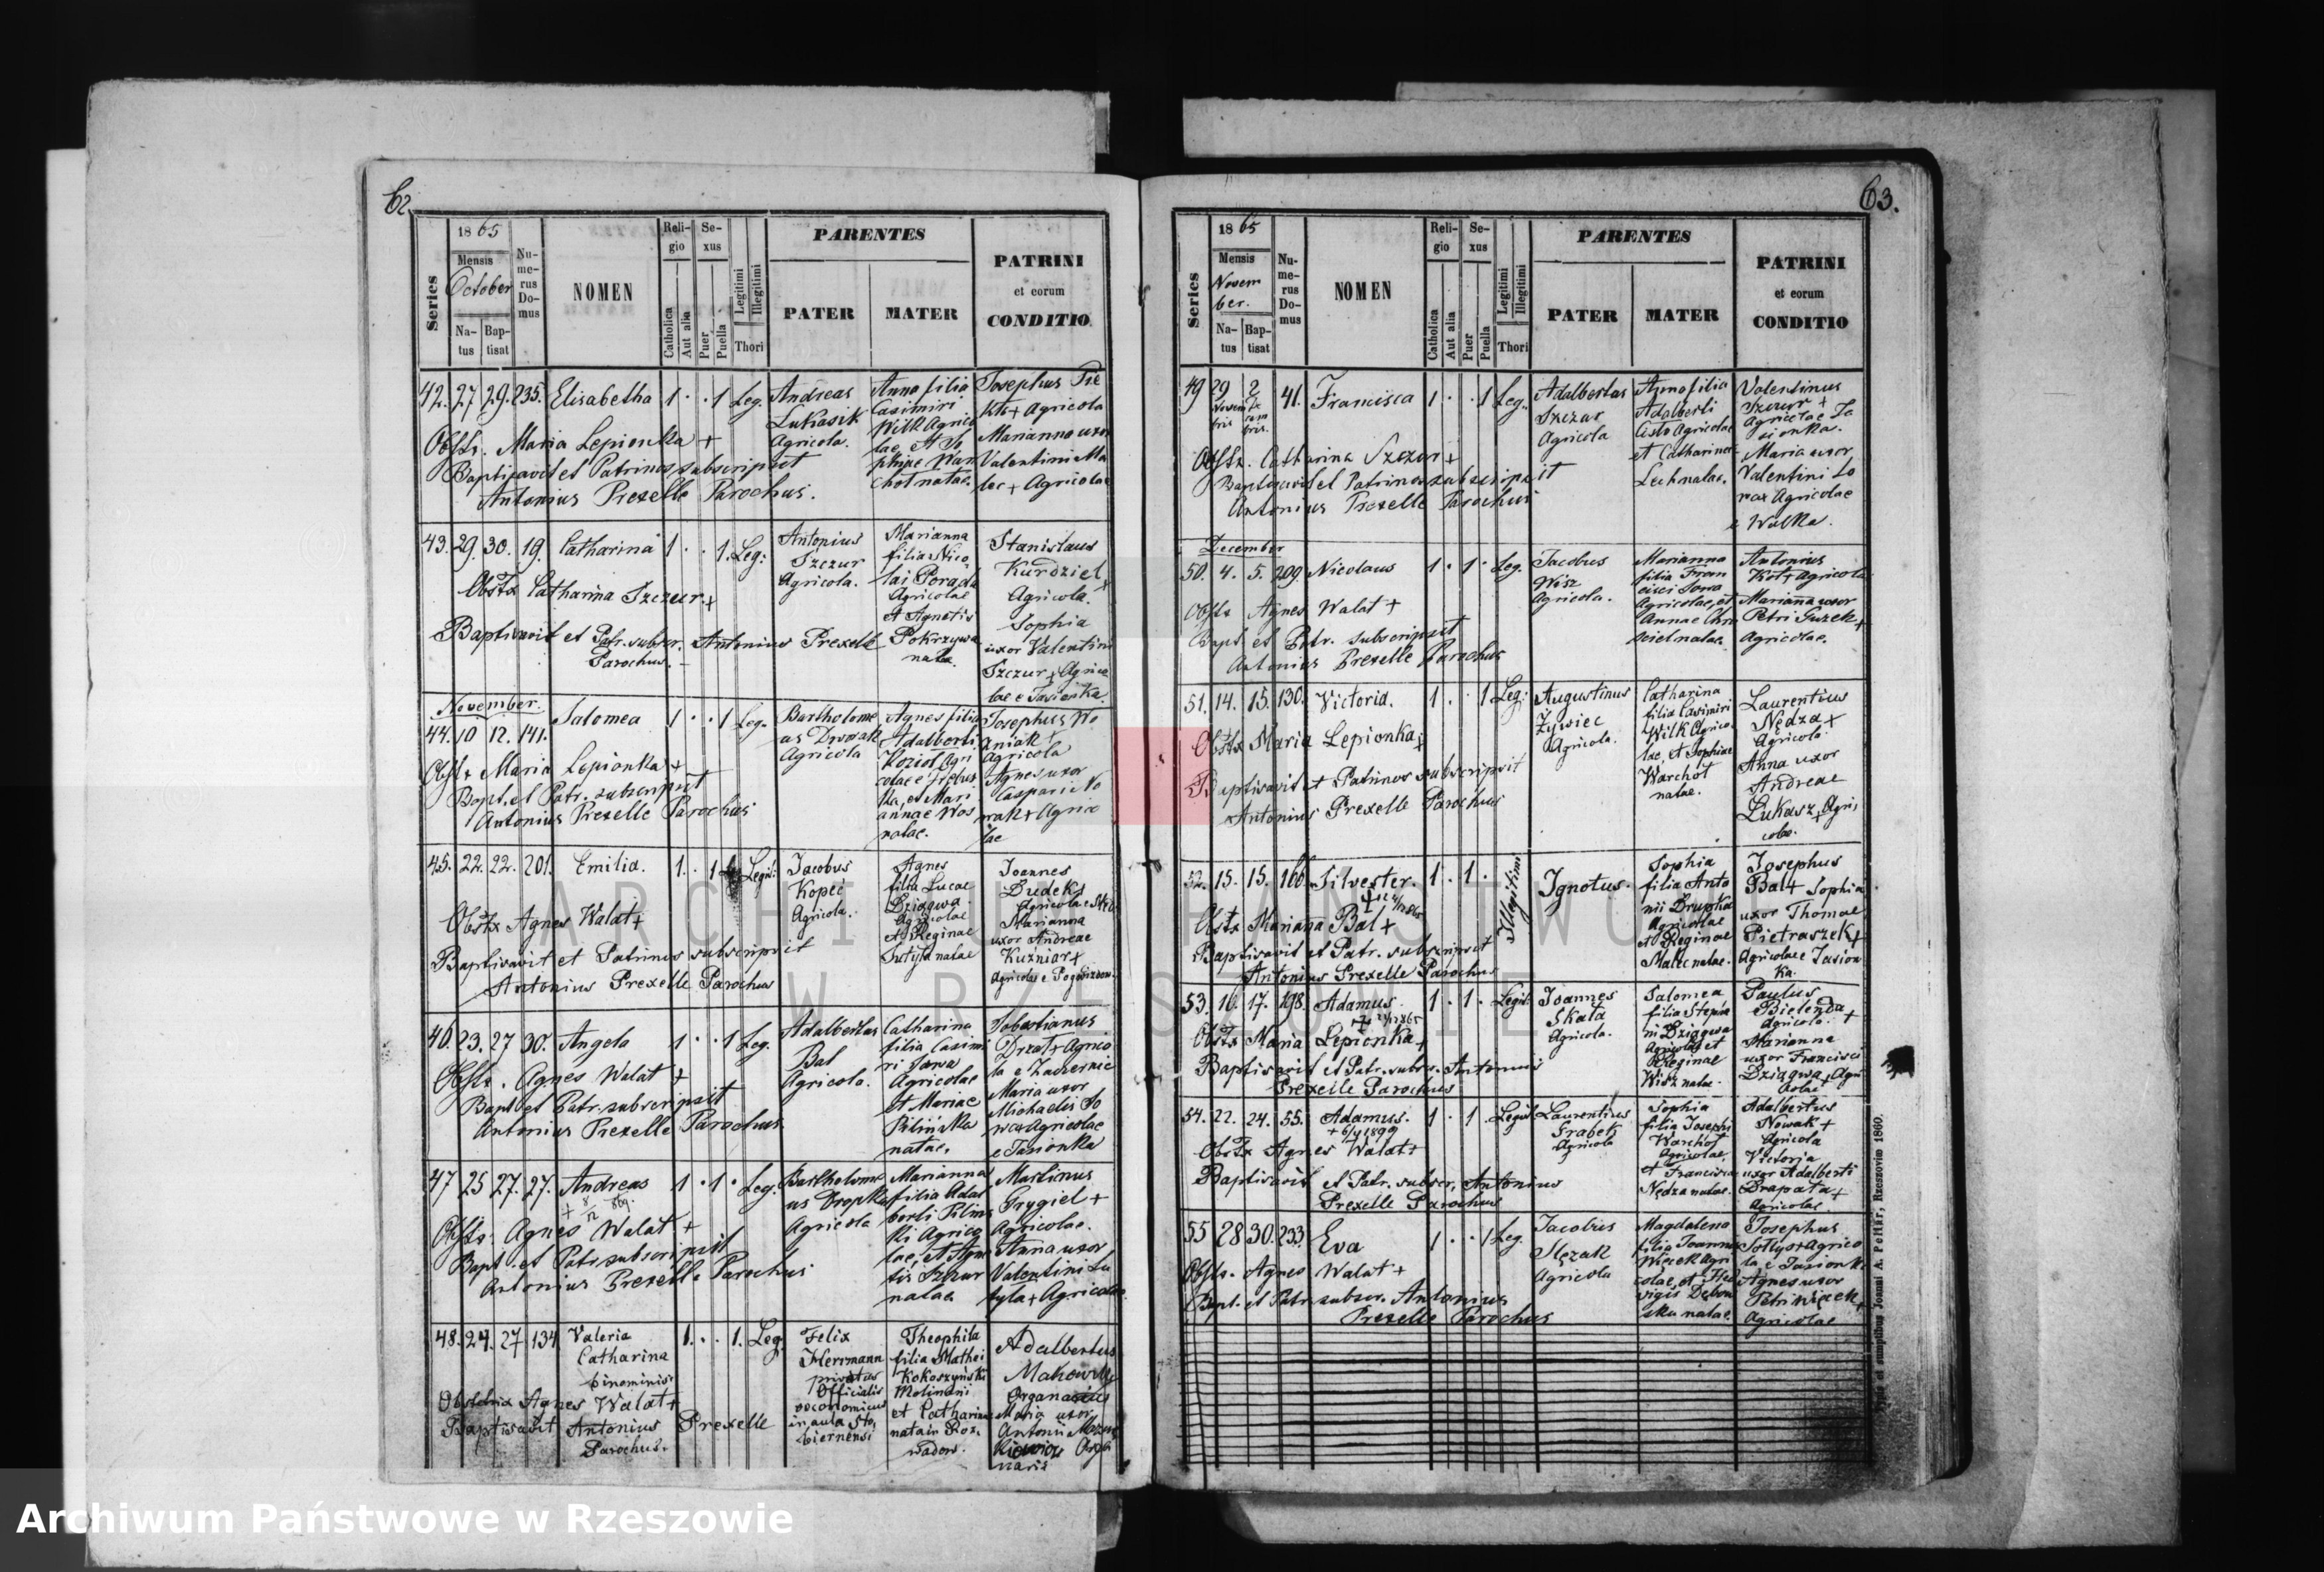 62.
Series
18 65
Mensis
October
Na-
tus
Bap-
tisat
Nu-
me-
rus
Do-
mus
NOMEN
Reli-
gio
Catholica
Aut alia
Se-
xus
Puer
Puella
Legitimi
Illegitimi
Thori
PARENTES
PATER
MATER
PATRINI
et eorum
CONDITIO
42. 27 29. 235. Elisabetha 1 · · 1 Leg.
Andreas
Lukasik
Agricola.
Anna filia
Casimiri
Wilk Agrico
lae, et So
phiae War
chot natae.
Josephus
Agricola
Marianna uxor
Valentini Ma
lec + Agricolae
Obstr. Maria Lepionka +
Baptisavit et Patrinos subscripsit
Antonius Prexelle Parochus.
43. 29. 30. 19. Catharina 1 · · 1. Leg:
Antonius
Szczur
Agricola.
Marianna
filia Nico
lai Porada
Agricolae
et Agnetis
Pokrzywa
natae.
Stanislaus
Kurdziel +
Agricola.
Sophia
uxor Valentini
Szczur + Agrico
lae e Jasionka
Obstx Catharina Szczur +
Baptisavit et Patr. subscr. Antonius Prexelle
Parochus.
November.
44. 10 12. 141. Salomea 1 · · 1 Leg.
Bartholome
us Dworak
Agricola
Agnes filia
Adalberti
Kozioł Agri
colae e Trzebus
ka, et Mari
annae Wos
natae.
Josephus Wo
aniak +
Agricola
Agnes uxor
Caspari No
wak + Agrico
lae
Obstx Maria Lepionka +
Bapt. et Patr. subscripsit
Antonius Prexelle Parochus
45. 22. 22. 201. Emilia. 1. · 1 Legit:
Jacobus
Kopeć
Agricola.
Agnes
filia Lucae
Dziągwa
Agricolae
et Reginae
natae
Joannes
Dudek +
Agricola
Marianna
uxor Andreae
Kuźniar +
Agricolae e
Obstx Agnes Walat +
Baptisavit et Patrinos subscripsit
Antonius Prexelle Parochus
46. 23. 27 30. Angela 1 · · 1 Leg.
Adalbertus
Bal
Agricola.
Catharina
filia Casimi
ri Sowa
Agricolae
et Mariae
Pilinska
natae.
Sebastianus
Drzał + Agrico
la e Zaczernie
Maria uxor
Michaelis So
wa + Agricolae
e Jasionka
Obstr. Agnes Walat +
Bapt. et Patr. subscripsit
Antonius Prexelle Parochus.
47 25 27. 27. Andreas 1 · 1 · Leg.
Bartholome
us Cropka
Agricola
Marianna
filia Adal
berti Pilins
ki Agrico
lae, et Agne
tis Szczur
natae.
Martinus
Grygiel +
Agricolae.
Anna uxor
Valentini Lu
tyla + Agricolae
Obstr. Agnes Walat +
Bapt. et Patr. subscripsit
Antonius Prexelle Parochus
48. 24. 27 134 Valeria 1. · · 1. Leg.
Catharina
binominis
Felix
Herrmann
privatus
Officialis
oeconomicus
in aula Sto,
biernensi
Theophila
filia Mathei
Kokoszyński
Molinani
et Catharina
nata in Roz,
wadow.
Adalbertus
Makowski
Organarius
Maria uxor
Antonii
Orga
naris
Obstetrix Agnes Walat +
Baptisavit Antonius Prexelle
Parochus.
63.
Series
18 65
Mensis
Novem
ber.
Na-
tus
Bap-
tisat
Nu-
me-
rus
Do-
mus
NOMEN
Reli-
gio
Catholica
Aut alia
Se-
xus
Puer
Puella
Legitimi
Illegitimi
Thori
PARENTES
PATER
MATER
PATRINI
et eorum
CONDITIO
49 29 2 41. Francisca 1 · · 1 Leg.
Adalbertus
Szczur
Agricola
Anna filia
Adalberti
Cisło Agricolae
et Catharinae
Lech natae.
Valentinus
Szczur +
Agricolae Ja
sionka.
Maria uxor
Valentini So
wa + Agricolae
e Wolka.
Obstx. Catharina Szczur +
Baptisavit et Patrinos subscripsit
Antonius Prexelle Parochus
December
50. 4. 5. 209. Nicolaus 1 · 1 · Leg.
Jacobus
Wisz
Agricola.
Marianna
filia Fran
cisci Sowa
Agricolae, et
Annae Chm
iel natae.
Antonius
Kot + Agricola
Marianna uxor
Petri Guzek +
Agricolae.
Obstx Agnes Walat +
Bapt. et Patr. subscripsit
Antonius Prexelle Parochus
51. 14. 15. 130. Victoria. 1. · 1 Leg:
Augustinus
Żywiec
Agricola.
Catharina
filia Casimiri
Wilk Agrico,
lae, et Sophiae
Warchoł
natae.
Laurentius
Nędza +
Agricola
Anna uxor
Andreae
Lukasz + Agri,
colae.
Obstx Maria Lepionka +
Baptisavit et Patrinos subscripsit
Antonius Prexelle Parochus
52. 15. 15. 166 Silvester. 1 · 1 · Illegitimi
Ignotus.
Sophia
filia Anto
nii Drupka
Agricolae
et Reginae
Malec natae.
Josephus
Bal + Sophia
uxor Thomae
Pietraszek +
Agricolae e Jasion
ka.
Obstx Marianna Bal +
Baptisavit et Patr. subscripsit
Antonius Prexelle Parochus
53. 16. 17. 198. Adamus. 1 · 1 · Legit:
Joannes
Skała
Agricola.
Salomea
filia Stepha
ni Dziągwa
Agricolae et
Reginae
Wisz natae.
Paulus
Bielenda +
Agricola.
Marianna
uxor Francisci
Dziągwa + Agri
colae
Obstx Maria Lepionka +
Baptisavit et Patr. subscr. Antonius
Prexelle Parochus
54. 22. 24. 55. Adamus. 1 · 1 · Legit:
Laurentius
Grabek
Agricola
Sophia
filia Josephi
Warchoł
Agricolae,
et Francisca
Nędza natae.
Adalbertus
Nowak +
Agricola
Victoria
uxor Adalberti
Drapała +
Agricolae
Obstx Agnes Walat +
Baptisavit et Patr. subscr, Antonius
Prexelle Parochus
55 28 30. 233. Eva 1 · · 1 Leg.
Jacobus
Slęzak
Agricola
Magdalena
filia Joannis
Więcek Agri
colae, et Hed
vigis Dębow
ska natae.
Josephus
Sołtys + Agrico
la e Jasionka
Agnes uxor
Petri Więcek +
Agricolae
Obstr. Agnes Walat +
Bapt. et Patr. subscr. Antonius
Prexelle Parochus
Typis et sumptibus Joanni A. Pellar, Rzeszoviae 1860.
ARCHIWUM PAŃSTWOWE
W RZESZOWIE
Archiwum Państwowe w Rzeszowie